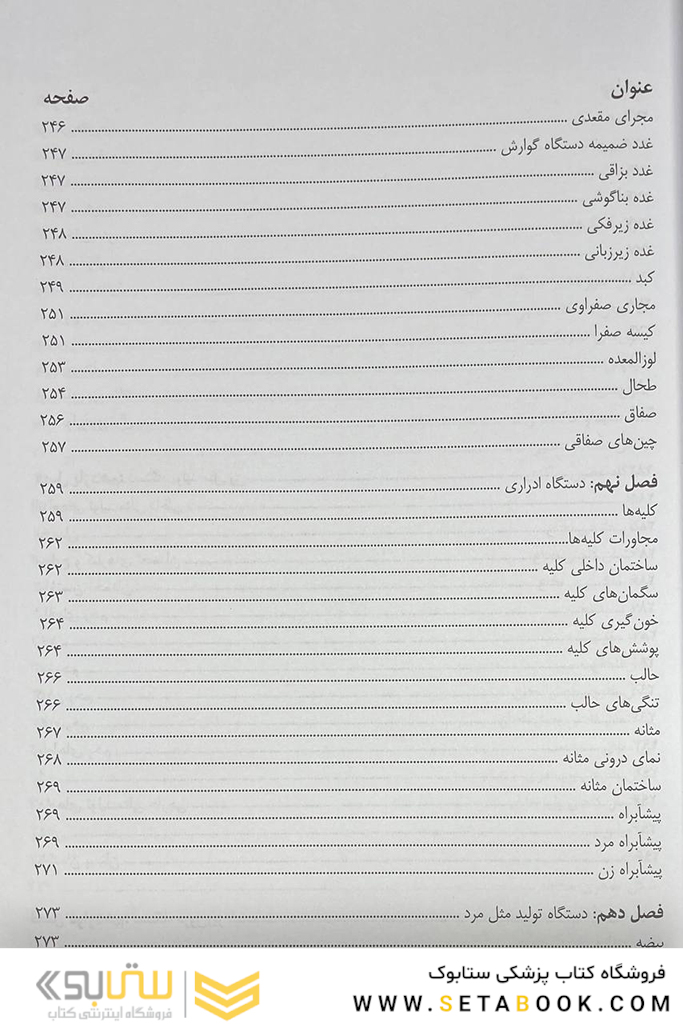 عنوان صفحه
مجرای مقعدی ........ ۲۴۶
غدد ضمیمه دستگاه گوارش ........ ۲۴۷
غدد بزاقی ........ ۲۴۷
غده بناگوشی ........ ۲۴۷
غده زیرفکی ........ ۲۴۸
غده زیرزبانی ........ ۲۴۸
کبد ........ ۲۴۹
مجاری صفراوی ........ ۲۵۱
کیسه صفرا ........ ۲۵۱
لوزالمعده ........ ۲۵۳
طحال ........ ۲۵۴
صفاق ........ ۲۵۶
چین‌های صفاقی ........ ۲۵۷
فصل نهم: دستگاه ادراری ........ ۲۵۹
کلیه‌ها ........ ۲۵۹
مجاورات کلیه‌ها ........ ۲۶۲
ساختمان داخلی کلیه ........ ۲۶۲
سگمان‌های کلیه ........ ۲۶۳
خون‌گیری کلیه ........ ۲۶۴
پوشش‌های کلیه ........ ۲۶۴
حالب ........ ۲۶۶
تنگی‌های حالب ........ ۲۶۶
مثانه ........ ۲۶۷
نمای درونی مثانه ........ ۲۶۸
ساختمان مثانه ........ ۲۶۹
پیشابراه ........ ۲۶۹
پیشابراه مرد ........ ۲۶۹
پیشابراه زن ........ ۲۷۱
فصل دهم: دستگاه تولید مثل مرد ........ ۲۷۳
بیضه ........ ۲۷۳
فروشگاه کتاب پزشکی ستابوک
WWW.SETABOOK.COM
ستابوک
فروشگاه اینترنتی کتاب